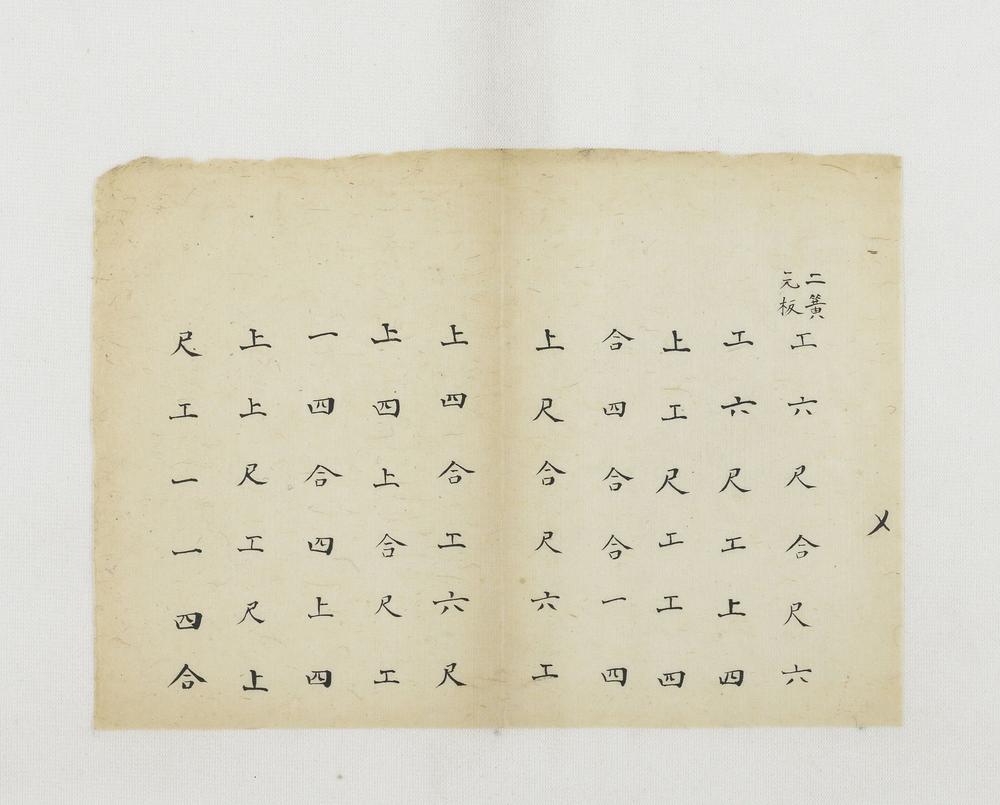 二簧
元板
工六尺合尺六
工六尺工上四
上工尺工工四
合四合合一四
上尺合尺六工
上四合工六尺
上四上合尺工
一四合四上四
上上尺工尺上
尺工一一四合